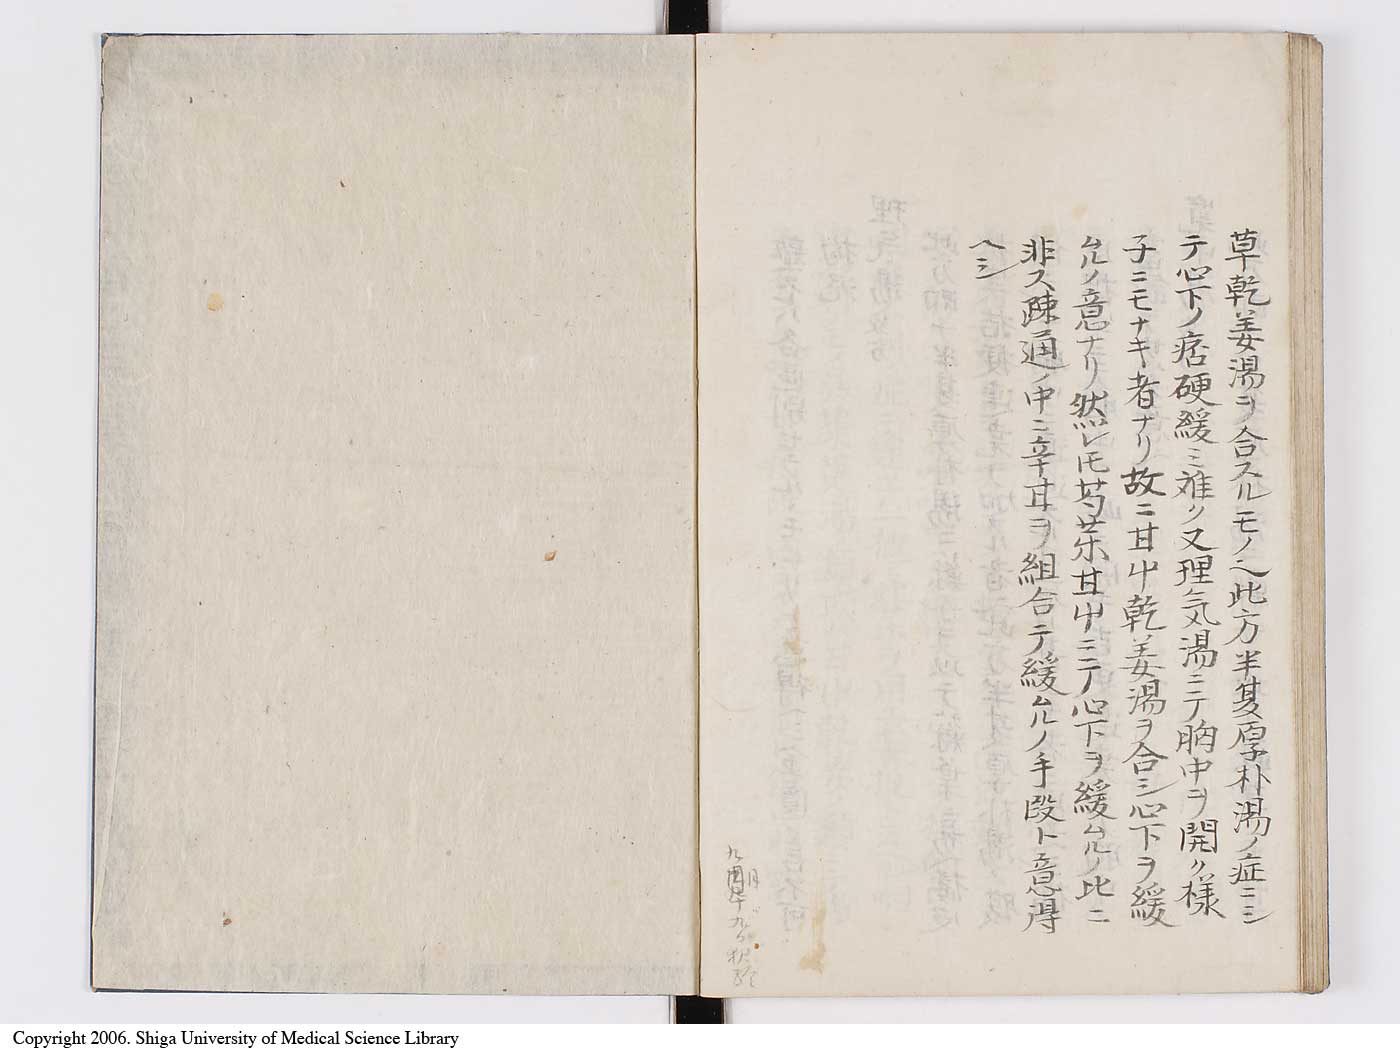 草乾姜湯ヲ合スルモノヘ此方半夏厚朴湯ノ症ニシ
テ心下ノ痞硬緩ミ難ク又理気湯ニテ胸中ヲ開ク様
子ニモナキ者ナリ故ニ甘屮乾姜湯ヲ合シ心下ヲ緩
ムルノ意ナリ然レ𪜈芍薬甘屮ニテ心下ヲ緩ムルノ比ニ
非ス疎通ノ中ニ辛甘ヲ組合テ緩ムルノ手段ト意得
ヘシ
Copyright 2006. Shiga University of Medical Science Library